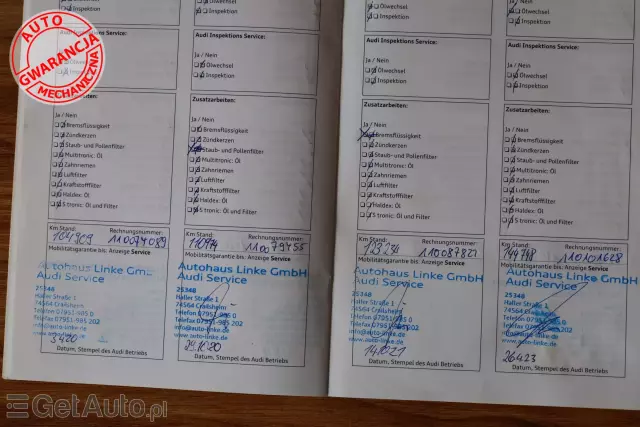 AUTO
GWARANCJA
MECHANICZNA
Inspektion
Audi Inspektions Service:
Ja / Nein
Ölwechsel
Inspektion
Zusatzarbeiten:
Ja / Nein
Bremsflüssigkeit
Zündkerzen
Staub- und Pollenfilter
Multitronic: Öl
Zahnriemen
Luftfilter
Kraftstofffilter
Haldex: Öl
S tronic: Öl und Filter
Km Stand: Rechnungsnummer:
104909 110074089
Mobilitätsgarantie bis: Anzeige Service
Autohaus Linke Gm
Audi Service
25348
Haller Straße 1
74564 Crailsheim
Telefon 07951-985 0
Telefax 07951-985 202
info@auto-linke.de
www.auto-linke.de
5420
Datum, Stempel des Audi Betriebs
Inspektion
Audi Inspektions Service:
Ja / Nein
Ölwechsel
Inspektion
Zusatzarbeiten:
Ja / Nein
Bremsflüssigkeit
Zündkerzen
Staub- und Pollenfilter
Multitronic: Öl
Zahnriemen
Luftfilter
Kraftstofffilter
Haldex: Öl
S tronic: Öl und Filter
Km Stand: Rechnungsnummer:
Mobilitätsgarantie bis: Anzeige Service
Autohaus Linke GmbH
Audi Service
25348
Haller Straße 1
74564 Crailsheim
Telefon 07951-985 0
Telefax 07951-985 202
info@auto-linke.de
www.auto-linke.de
Datum, Stempel des Audi Betriebs
Inspektion
Audi Inspektions Service:
Ja / Nein
Ölwechsel
Inspektion
Zusatzarbeiten:
Ja / Nein
Bremsflüssigkeit
Zündkerzen
Staub- und Pollenfilter
Multitronic: Öl
Zahnriemen
Luftfilter
Kraftstofffilter
Haldex: Öl
S tronic: Öl und Filter
Km Stand: Rechnungsnummer:
123234 110087821
Mobilitätsgarantie bis: Anzeige Service
Autohaus Linke GmbH
Audi Service
25348
Haller Straße 1
74564 Crailsheim
Telefon 07951-985 0
Telefax 07951-985 202
info@auto-linke.de
www.auto-linke.de
Datum, Stempel des Audi Betriebs
Inspektion
Audi Inspektions Service:
Ja / Nein
Ölwechsel
Inspektion
Zusatzarbeiten:
Ja / Nein
Bremsflüssigkeit
Zündkerzen
Staub- und Pollenfilter
Multitronic: Öl
Zahnriemen
Luftfilter
Kraftstofffilter
Haldex: Öl
S tronic: Öl und Filter
Km Stand: Rechnungsnummer:
110101628
Mobilitätsgarantie bis: Anzeige Service
Autohaus Linke GmbH
Audi Service
25348
Haller Straße 1
74564 Crailsheim
Telefon 07951-985 0
Telefax 07951-985 202
info@auto-linke.de
www.auto-linke.de
26423
Datum, Stempel des Audi Betriebs
GetAuto.pl